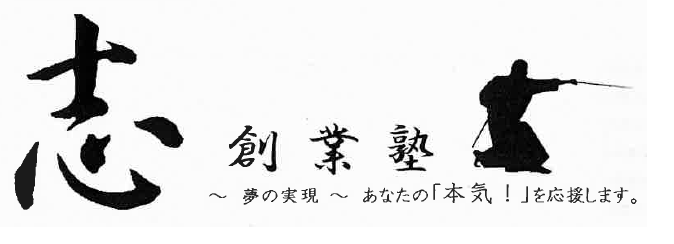 志
創業塾
～ 夢の実現 ～ あなたの「本気！」を応援します。